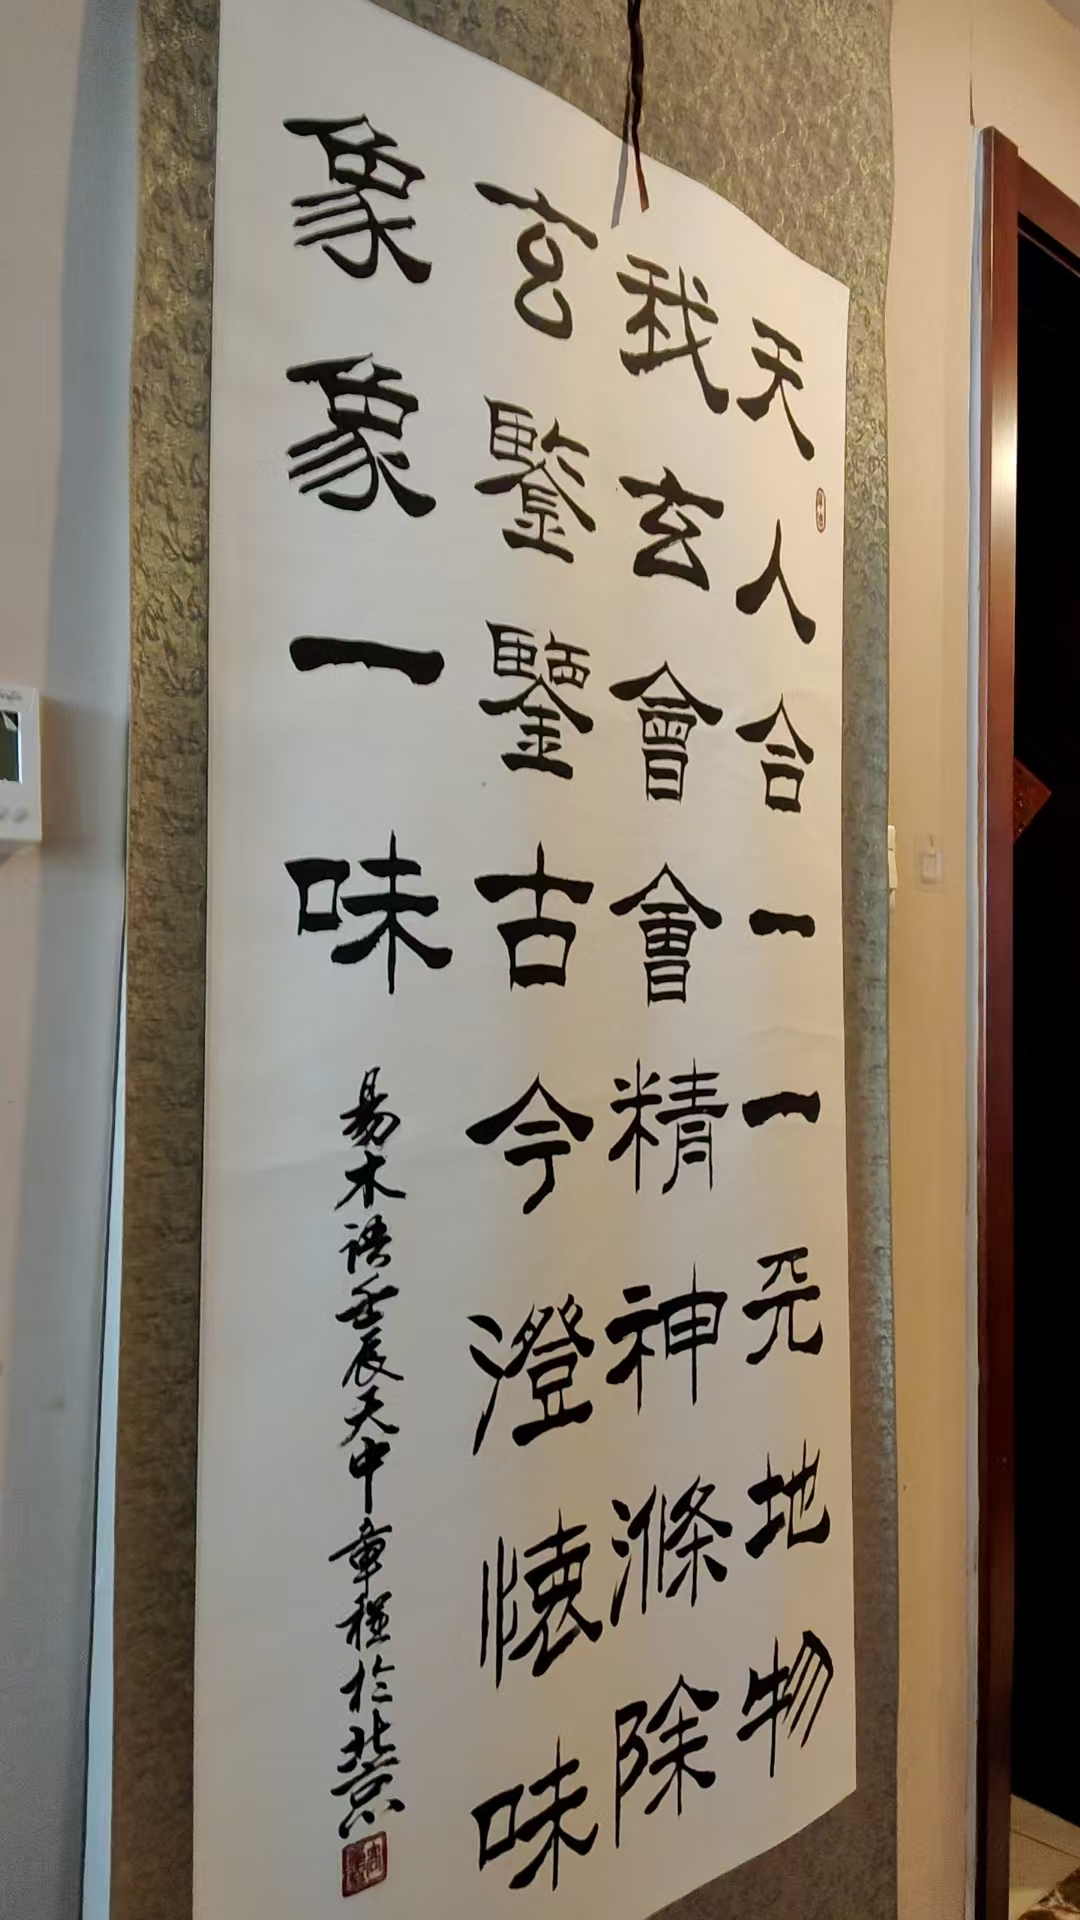 天人合一一元地物
我玄會會精神滌除
玄鑒鑒古今澄懷味
象象一味
易木語壬辰天中章程於北京